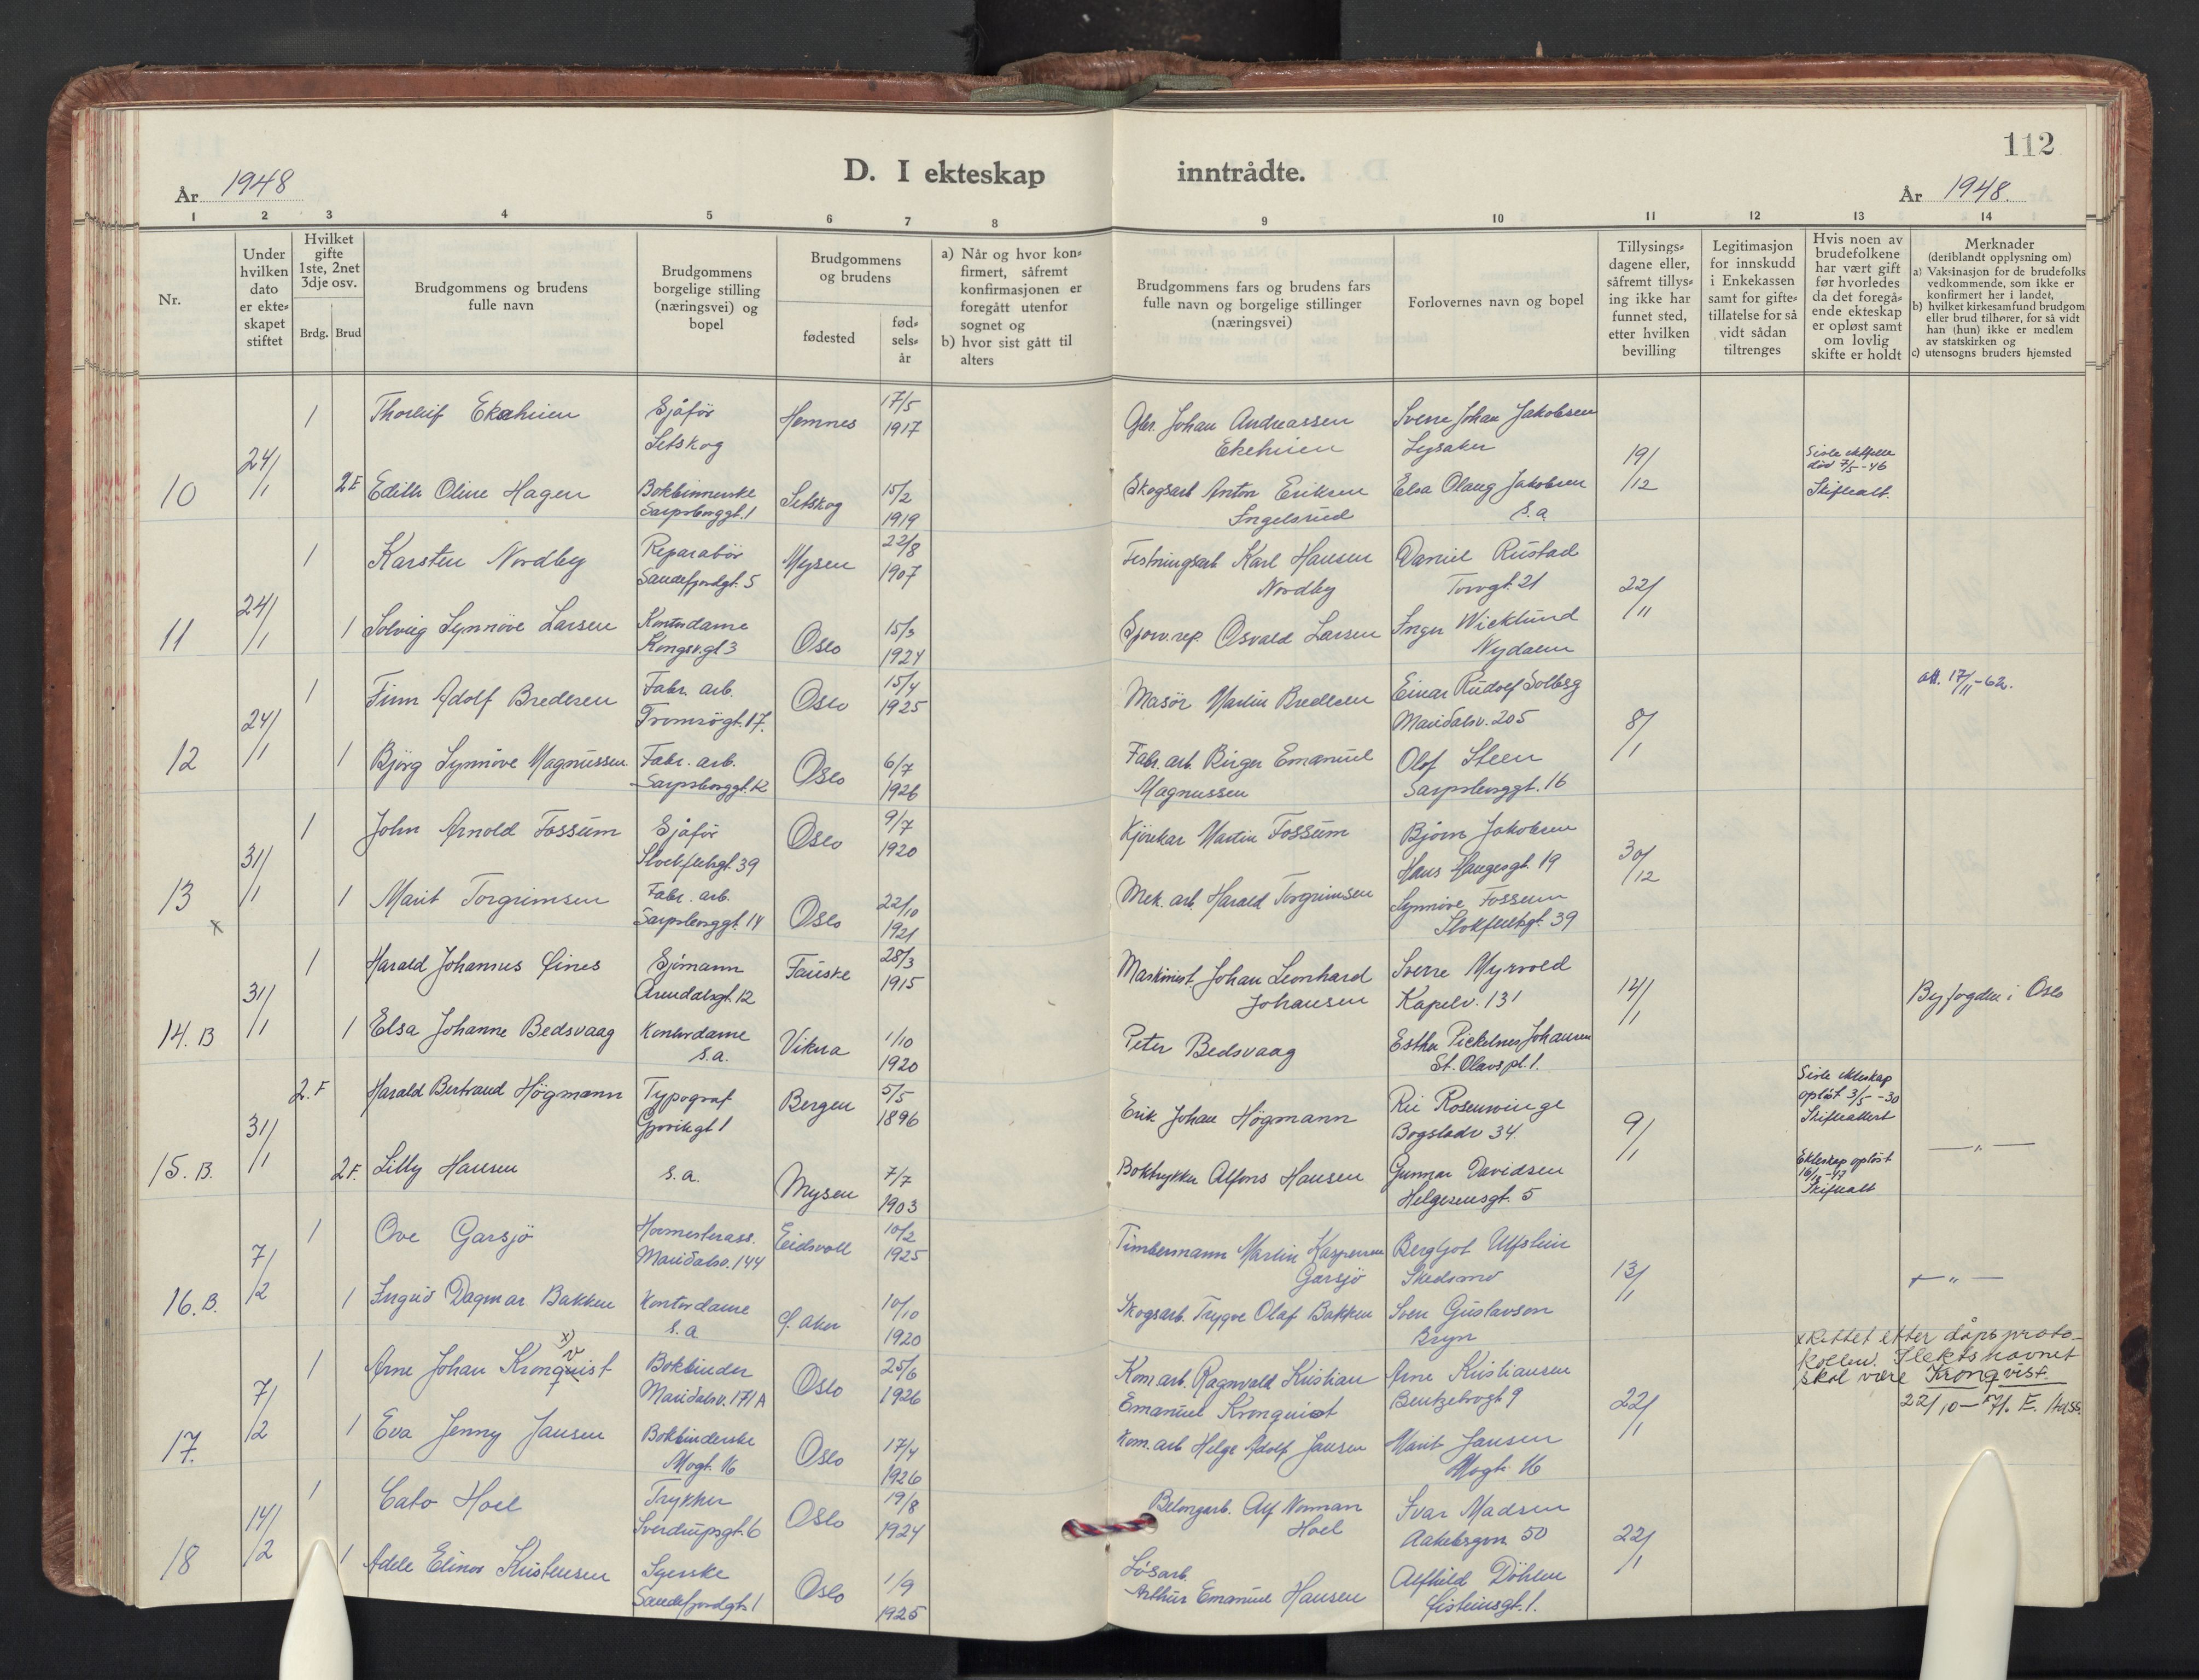 112
D. I ekteskap inntrådte.
År 1948
År 1948.
1 2 3 4 5 6 7 8 9 10 11 12 13 14
Nr.
Under hvilken dato er ekte-skapet stiftet
Hvilket gifte 1ste, 2net 3dje osv.
Brdg. Brud
Brudgommens og brudens fulle navn
Brudgommens borgelige stilling (næringsvei) og bopel
Brudgommens og brudens
fødested
fød-sels-år
a) Når og hvor kon-firmert, såfremt konfirmasjonen er foregått utenfor sognet og
b) hvor sist gått til alters
Brudgommens fars og brudens fars fulle navn og borgelige stillinger (næringsvei)
Forlovernes navn og bopel
Tillysings-dagene eller, såfremt tillys-ing ikke har funnet sted, etter hvilken bevilling
Legitimasjon for innskudd i Enkekassen samt for gifte-tillatelse for så vidt sådan tiltrenges
Hvis noen av brudefolkene har vært gift før hvorledes da det foregå-ende ekteskap er opløst samt om lovlig skifte er holdt
Merknader
(deriblandt opplysning om)
a) Vaksinasjon for de brudefolks vedkommende, som ikke er konfirmert her i landet,
b) hvilket kirkesamfund brudgom eller brud tilhører, for så vidt han (hun) ikke er medlem av statskirken og
c) utensogns bruders hjemsted
1 Thorleif Ekehiien Sjåfør Setskog Hemnes 17/5 1917 Johan Andreassen Ekehiien Sverre Johan Jakobsen Lysaker
10 24/1 2F Edith Oline Hagen Bokbinnerske Sarpsborggt. 1 Setskog 15/2 1919 Skogsarb Anton Eriksen Ingelsrud Elsa Olaug Jakobsen s.a. 19/12 Siste ektefelle død 7/5-46 Skifteatt.
1 Karsten Nordby Reparatør Sandefjordgt. 5 Mysen 22/8 1907 Festningsarb Karl Hansen Nordby Daniel Rustad Torvgt. 21
11 24/1 1 Solveig Synnøve Larsen Kontordame Kongsv.gt 3 Oslo 15/3 1924 Sporv.rep. Osvald Larsen Inger Wicklund Nydalen 22/11
1 Finn Adolf Bredesen Fabr. arb. Tromsøgt. 17. Oslo 15/4 1925 Masør Martin Bredesen Einar Rudolf Solbrg Maridalsv. 205 att. 17/11-62.
12 24/1 1 Bjørg Synnøve Magnussen Fabr. arb. Sarpsborggt. 12 Oslo 6/7 1926 Fabr. arb. Birger Emanuel Magnussen Olof Steen Sarpsborggt. 16 8/1
1 John Arnold Fossum Sjåfør Stockflethgt. 39 Oslo 9/7 1920 Kjørekar Martin Fossum Bjørn Jakobsen Hans Haugesgt. 19
13 x 31/1 1 Marit Torgrimsen Fabr. arb. Sarpsborggt. 14 Oslo 22/10 1921 Mek. arb. Harald Torgrimsen Synnøve Fossum Stokflethgt. 39 30/12
1 Harald Johannes Øines Sjømann Arendalsgt. 12 Fauske 28/3 1915 Maskinist Johan Leonhard Johansen Sverre Myrvold Kapelv. 131
14. B 31/1 1 Elsa Johanne Bedsvaag Kontordame s.a. Vikna 1/10 1920 Peter Bedsvaag Esther Johansen St. Olavs pl. 1. 14/1 Byfogden i Oslo
2. F Harald Bertrand Høgmann Typograf Gjøvikgt 1 Bergen 5/5 1896 Erik Johan Høgmann Rosenwinge Bogstadv 34. Siste ekteskap opløst 3/5-30 Skifteattest
15. B. 31/1 2 F. Lilly Hansen s.a. Mysen 7/7 1903 Boktrykker Alfons Hansen Gunnar Davidsen Helgesensgt. 5 9/1 Ekteskap opløst -47 Skifteatt — " —
1 Ove Garsjø Hovmesterass. Maridalsv. 144 Eidsvoll 10/2 1925 Timbermann Martin Kaspersen Garsjø Bergljot Ulfstein Skedsmo
16. B. 7/2 1 Ingrid Dagmar Bakken Kontordame s.a Ø. aker 10/10 1920 Skogsarb. Trygve Olaf Bakken Sven Gustavson Bryn 13/1 — " —
1 Arne Johan Kronquist x) v Bokbinder Maridalsv. 171 A Oslo 25/6 1926 Kom. arb. Ragnvald Kristian Emanuel Kronquist Arne Kristiansen Bentzebrogt 9
x Rettet etter dåpsproto-kollen. Slektsnavnet skal være Kronqvist. 22/10-71. E. Aass.
17. 7/2 1 Eva Jenny Jansen Bokbinderske Mogt. 16 Oslo 17/4 1926 Kom. arb Helge Adolf Jansen Marit Jansen Mogt. 16 22/1
1 Cato Hoel Trykker Sverdrupsgt. 6 Oslo 19/8 1924 Betongarb. Alf Norman Hoel Ivar Madsen Aakebergvn 50
18 14/2 1 Adele Elinor Kristensen Syerske Sandefjordgt. 1 Oslo 1/9 1925 Løsarb. Arthur Emanuel Hansen Alfhild Døhlen Eisteinsgt. 1. 22/1